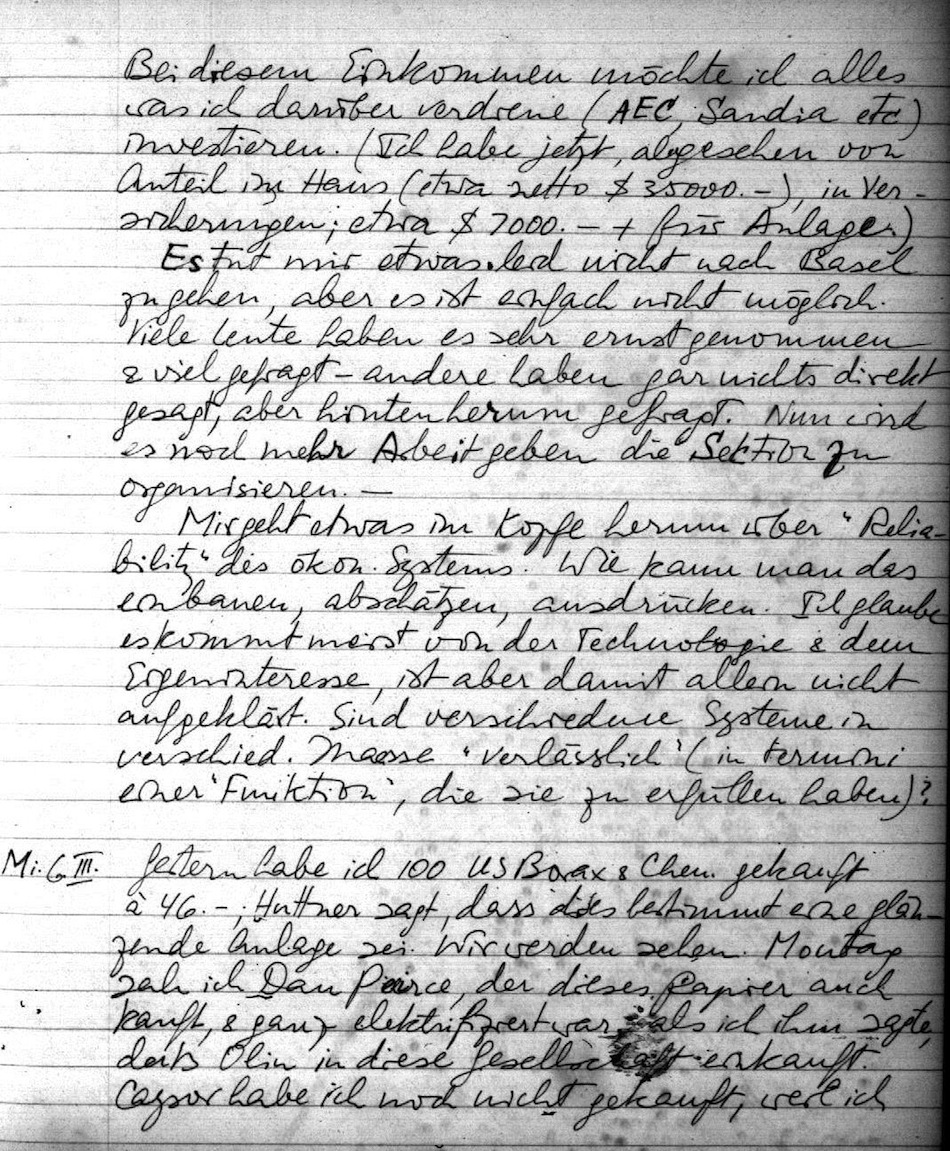 Bei diesem Einkommen möchte ich alles
was ich darüber verdiene (AEC, Sandia etc)
investieren. (Ich habe jetzt, abgesehen von
Anteil im Haus (etwa netto $ 35000.-), in Ver-
sicherungen; etwa $ 7000.- + für Anlagen)
Es tut mir etwas leid nicht nach Basel
zu gehen, aber es ist einfach nicht möglich.
Viele Leute haben es sehr ernst genommen
& viel gefragt – andere haben gar nichts direkt
gesagt, aber hintenherum gefragt. Nun wird
es noch mehr Arbeit geben die Sektion zu
organisieren. —
Mir geht etwas im Kopfe herum über "Relia-
bility" des ökon. Systems. Wie kann man das
einbauen, abschätzen, ausdrücken. Ich glaube
es kommt meist von der Technologie & dem
Eigeninteresse, ist aber damit allein nicht
aufgeklärt. Sind verschiedene Systeme in
verschied. Masse "verlässlich" (in termini
einer "Funktion", die sie zu erfüllen haben)?
Mi. 6. III. Gestern habe ich 100 US Borax & Chem. gekauft
à 46.-; Huttner sagt, dass dies bestimmt eine glän-
zende Anlage sei. Wir werden sehen. Montag
sah ich Dan Pierce, der dieses Papier auch
kauft, & ganz elektrifiziert war als ich ihm sagte,
dass Olin in diese Gesellschaft einkauft.
habe ich noch nicht gekauft, weil ich